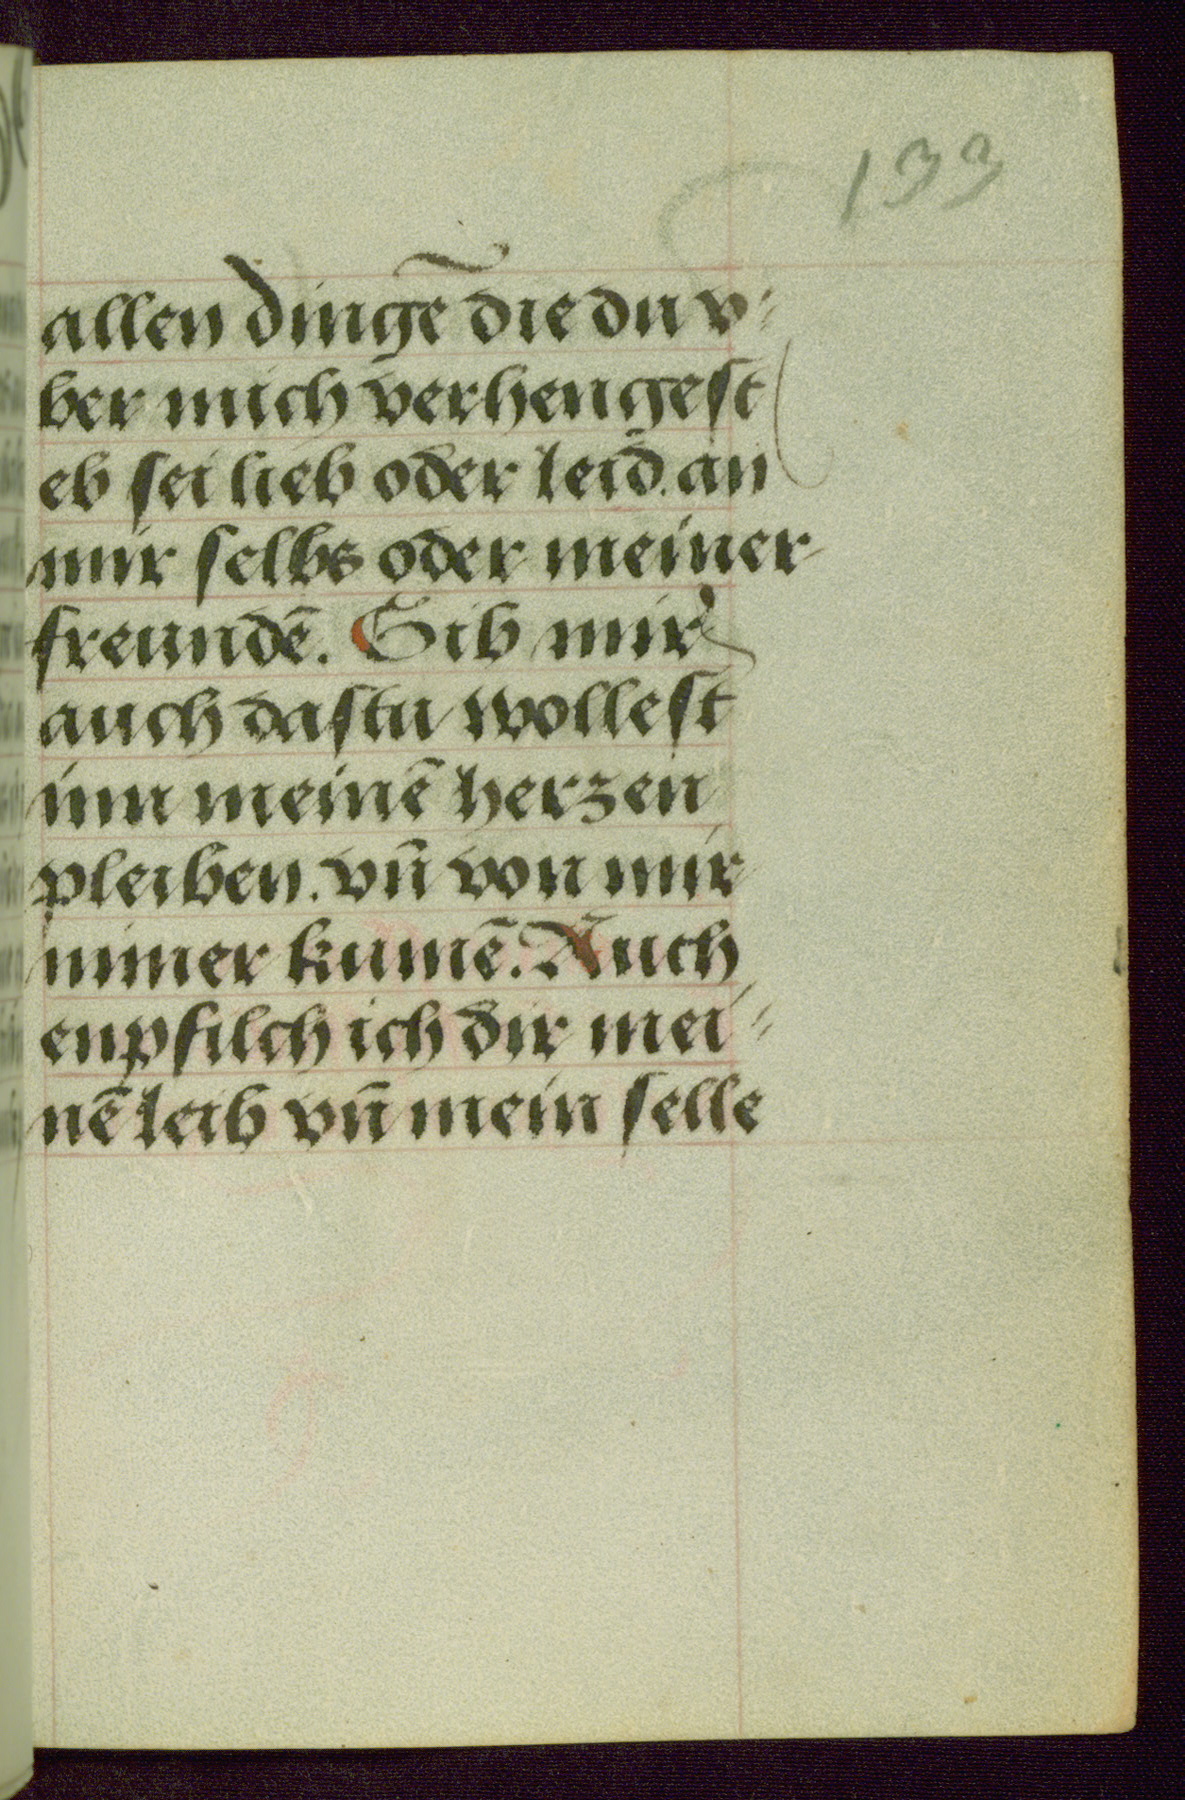 133
allen dingē die du v=
ber mich verhengest
eb sei lieb oder leid. an
mir selbs oder meiner
freundē. Gib mir
auch dastu wollest
inn meinē herzen
pleiben. vn̄ von mir
nimer kumē. Auch
enpfilch ich dir mei=
nē leib vn̄ mein selle